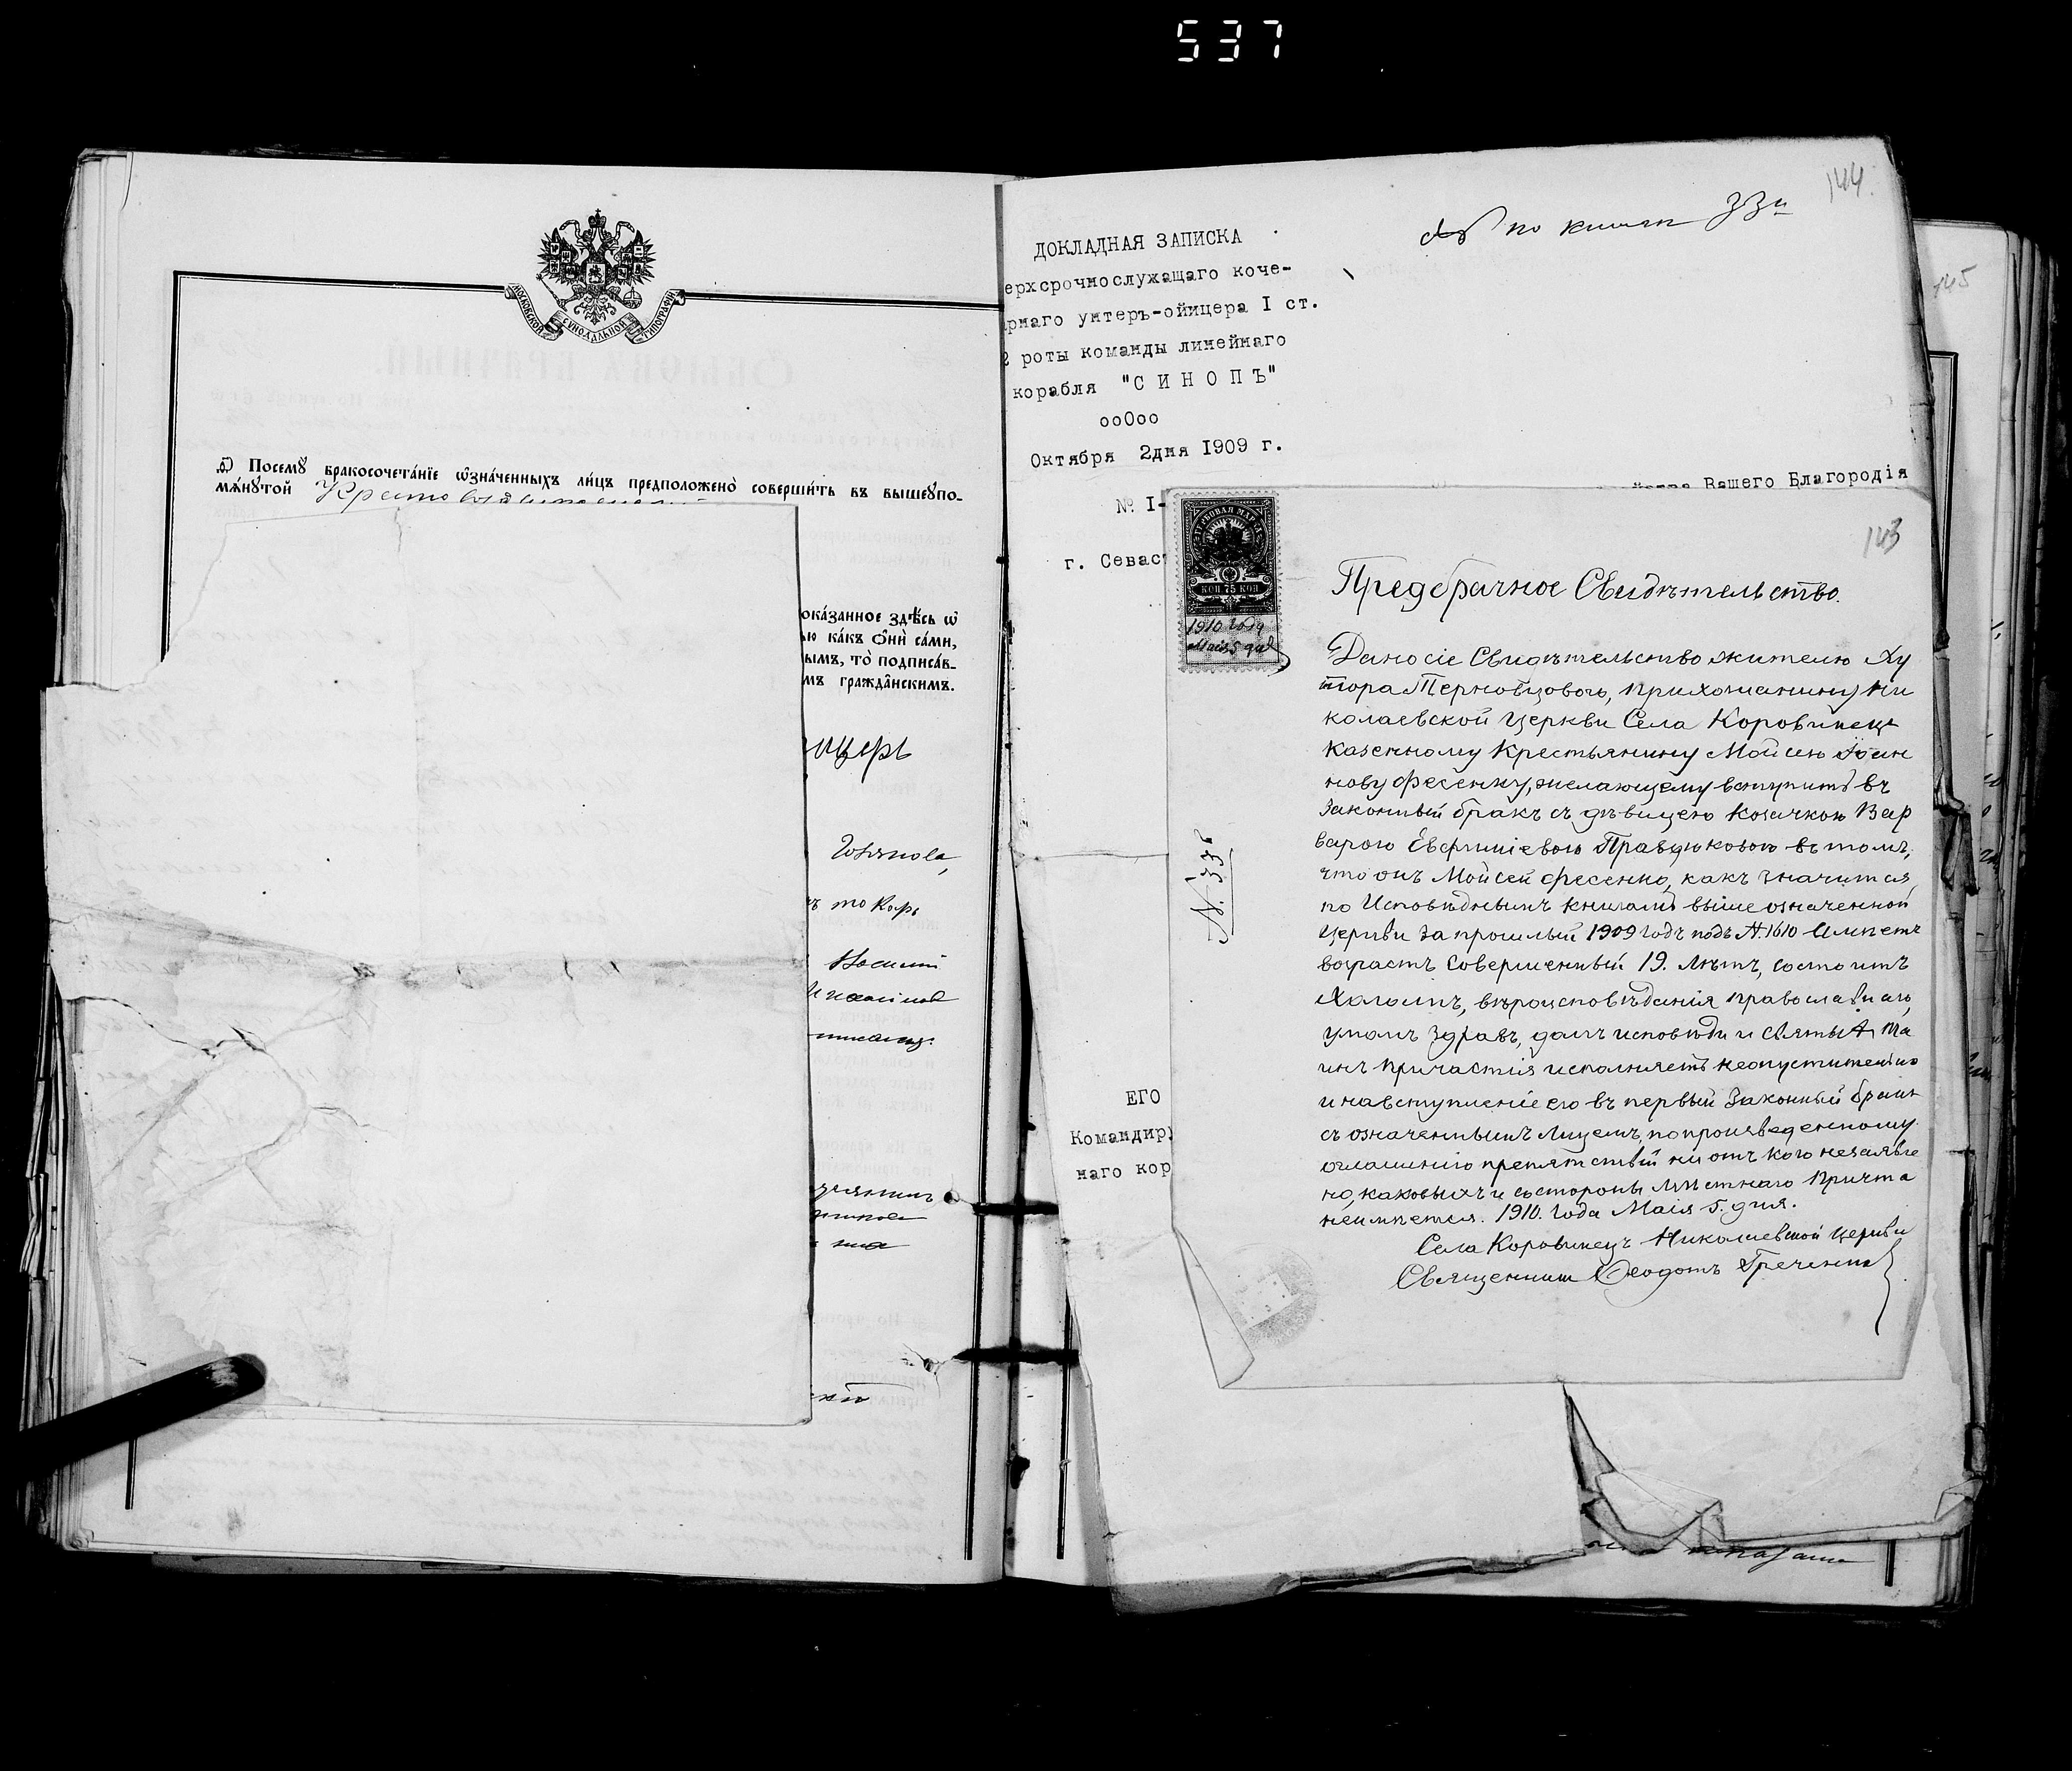 537
МОСКОВСКОЙ СѴНОДАЛЬНОЙ ТИПОГРАФІИ
Посемꙋ̀ бракосочета́нїе ѡ҆зна́ченныхъ ли́цъ предположено̀ соверши́ть въ вышеꙋпо-
мѧ́нꙋтой
ока́занное здѣ́сь
как̾ ѻ҆нѝ са́ми,
ымъ, то̀ подписа́в-
мъ гражда́нскимъ.
144
по книгѣ 33й
ДОКЛАДНАЯ ЗАПИСКА
ерхсрочнослужащаго коче-
рнаго унтеръ-ойицера I ст.
2 роты команды линейнаго
корабля "С И Н О П Ъ"
ооОоо
Октября 2дня 1909 г.
Вашего Благородія
№ I-
г. Севаст
ЕГО
Командир
наго кор
145
143
ГЕРБОВАЯ МАРКА
КОП 75 КОП
1910 года
Маія 5 дня
N. 336
Предбрачное Свидѣтельство.
Дано сіе Свидѣтельство жителю Ху
тора Терновцового, прихожанину Ни
колаевской Церкви Села Коровинецъ
казенному крестьянину Мойсею Іоан
нову Фесенку, желающему вступить въ
законный бракъ съ дѣвицею козачкою Вар
варою Евфиміевою Правдюковою въ томъ,
что онъ Мойсей Фесенко, какъ значится
по Исповѣднымъ книгамъ вышеозначенной
Церкви за прошлый 1909 годъ подъ N. 1610 Имѣетъ
возрастъ совершенный 19. лѣтъ, состоитъ
Холостъ, вѣроисповѣданія православнаго,
умомъ здравъ, долгъ исповѣди и Святыхъ Та
инъ причастія исполняетъ неопустительно
и на вступленіе его въ первый Законный бракъ
съ означеннымъ лицемъ, по произведенному
оглашенію препятствій ни отъ кого незаявле
но, каковыхъ и со стороны мѣстнаго Причта
неимѣется. 1910. года Маія 5. дня.
Села Коровинецъ Николаевской Церкви
Священникъ Ѳеодотъ Греченко